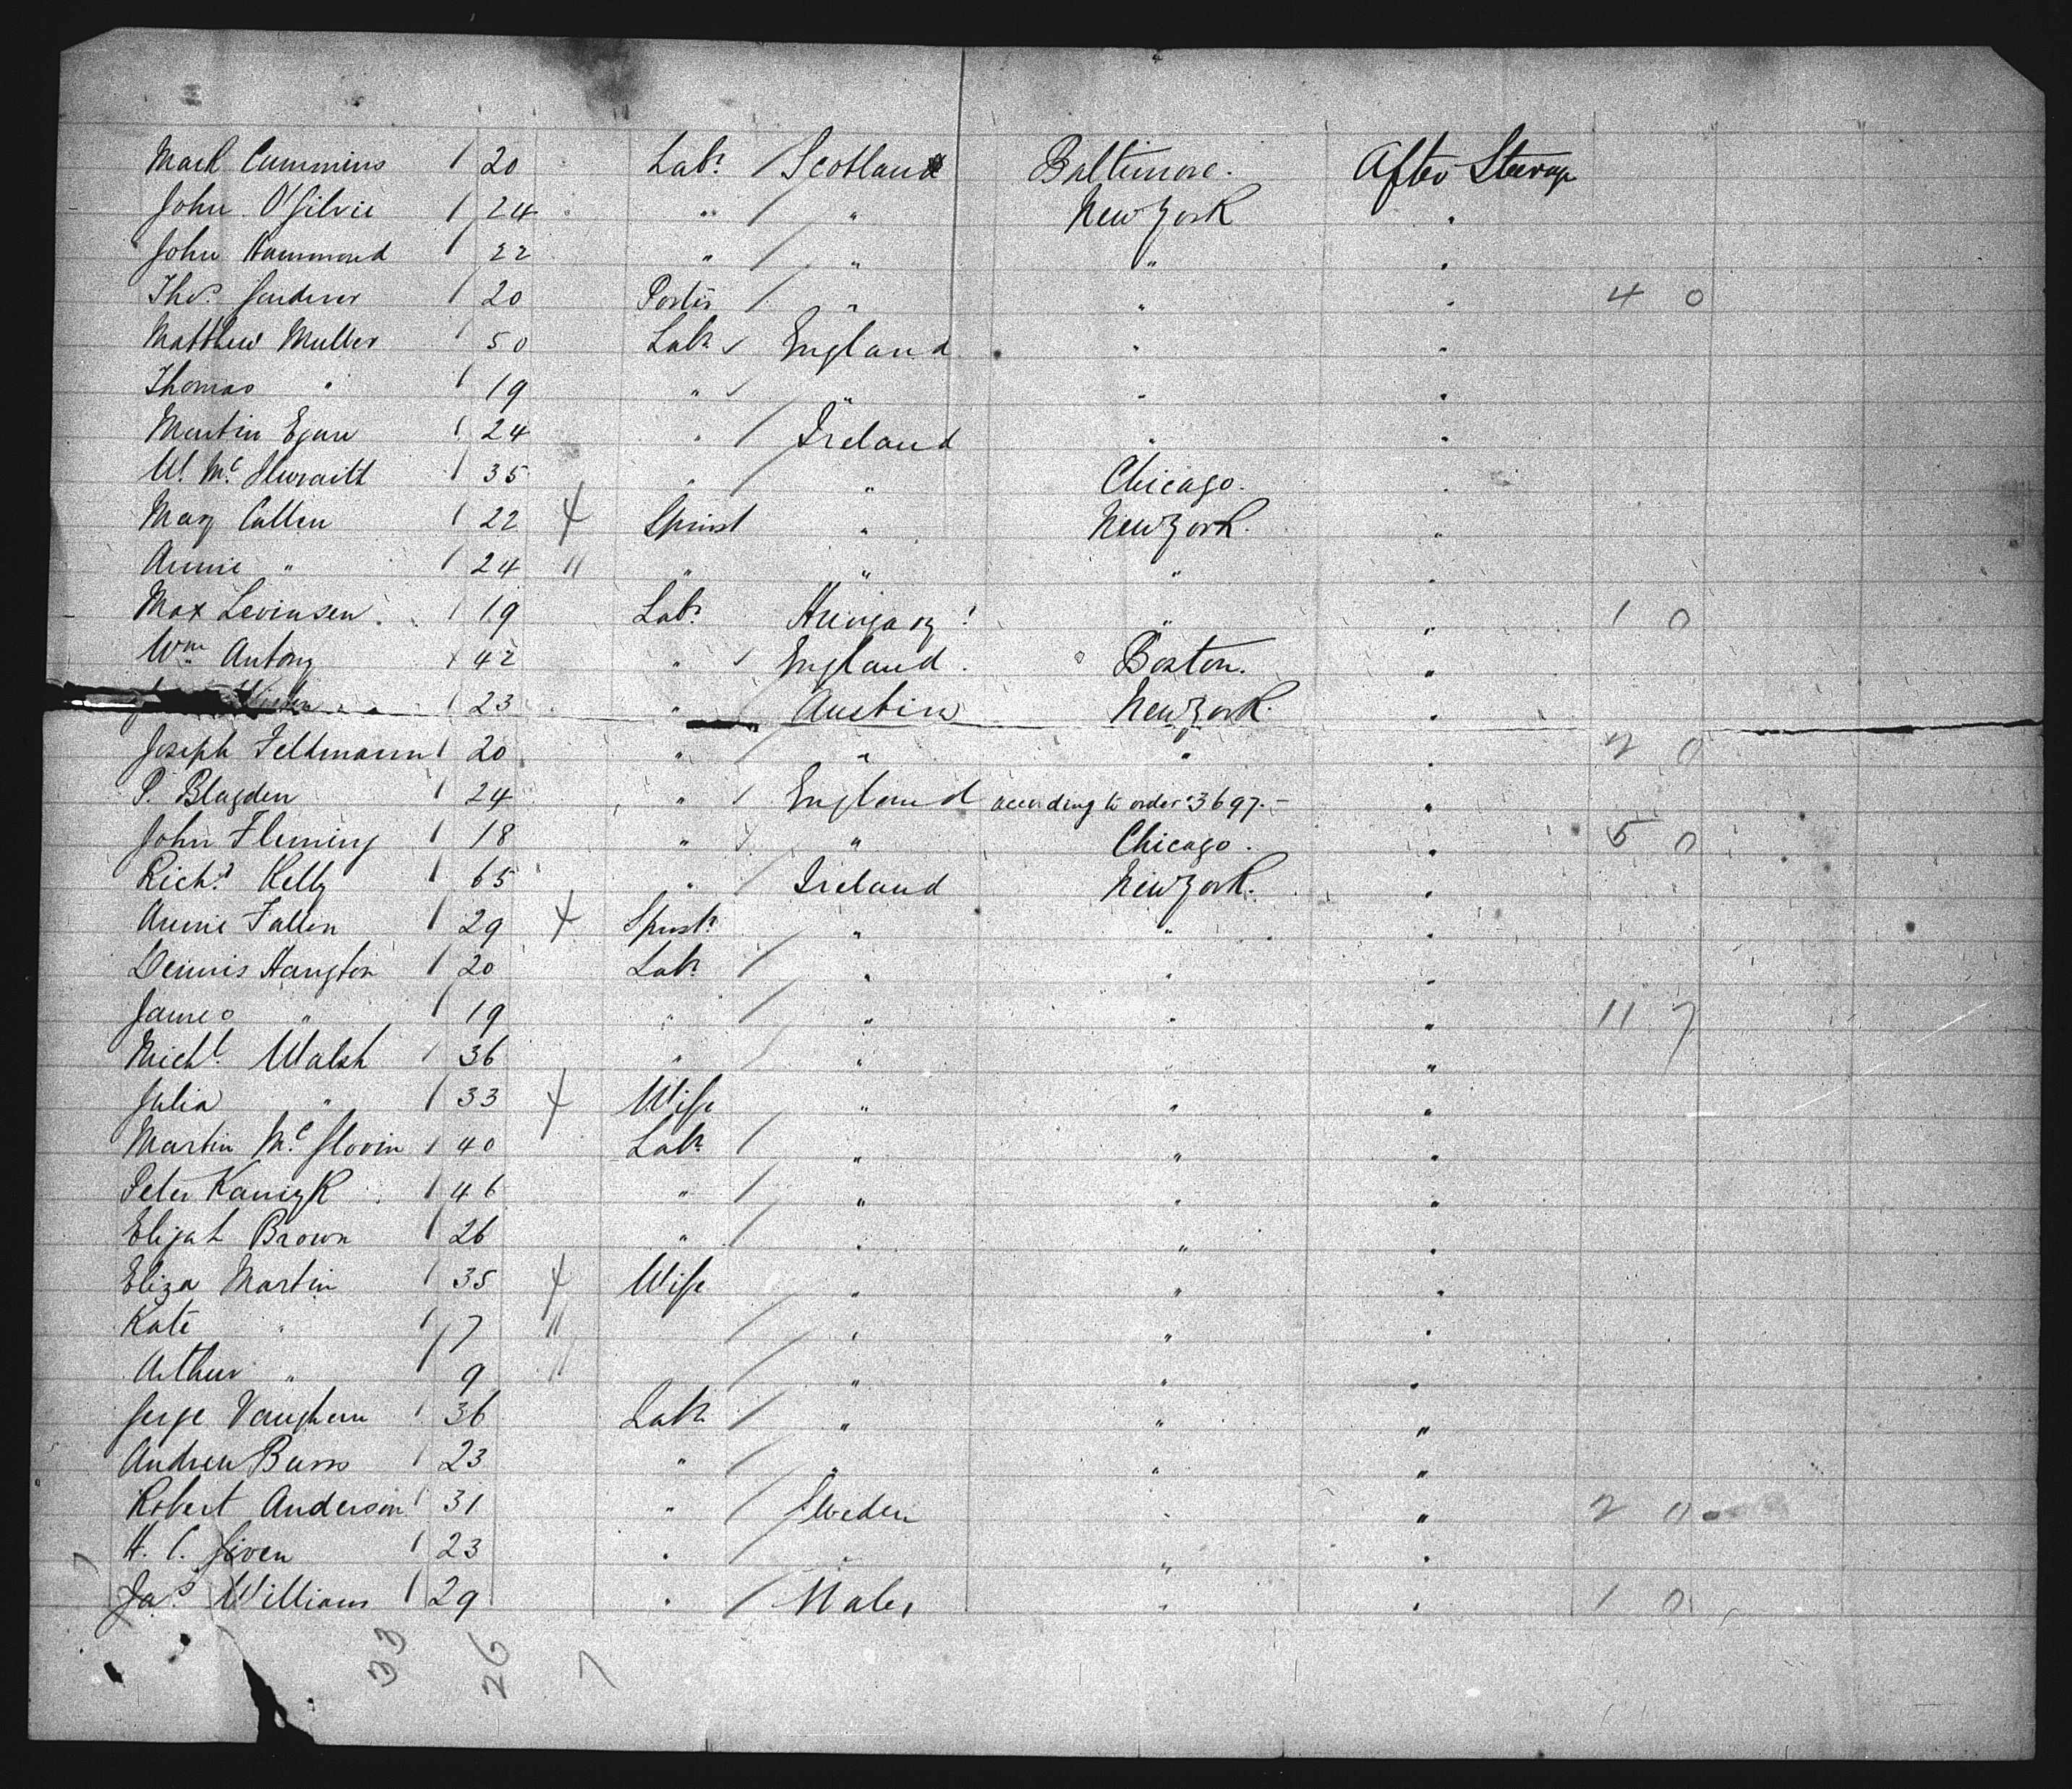 Mark Cummins / 20 Labr. / Scotland Baltimore. After Steerage
John O'Gilvie / 24 " / " New York "
John Hammond / 22 " / " " "
Thos. / 20 Porter / " " " 4 0
Matthew Muller / 50 Labr. ✓ England " "
Thomas " / 19 " ✓ " " "
Martin Egan / 24 " / Ireland " "
W. Mc. / 35 " / " Chicago. "
Mary Cullen / 22 + Spinst " New York. "
Annie " / 24 " " " " "
Max Levinsen. / 19 Labr. Hungary " " 1 0
Wm. Antony / 42 " ✓ England. Boston. "
/ 23 " Austria New York. "
Joseph Feltmann / 20 " / " " " 2 0
P. Blagden / 24 " / England according to order 3697.- "
John Fleming / 18 " ✓ " Chicago. " 5 0
Richd. Kelly / 65 " / Ireland New York. "
Annie Fallen / 29 + Spinstr. / " " "
Dennis Hangton / 20 Labr. / " " "
James " / 19 " / " " " 11 7
Michl. Walsh / 36 " / " " "
Julia " / 33 + Wife / " " "
Martin Mc. Glovin / 40 Labr. / " " "
Peter / 46 " / " " "
Elijah Brown / 26 " / " " "
Eliza Martin / 35 + Wife " " "
Kate " / 7 " / " " "
Arthur " / 9 " / " " "
George Vaughan / 36 Labr / " " "
Andrew / 23 " / " " "
Robert Anderson / 31 " / Sweden " " 2 0
H. C. Given / 23 " / " " "
Jas. Williams / 29 " / Wales " " 1 0
33 26 7